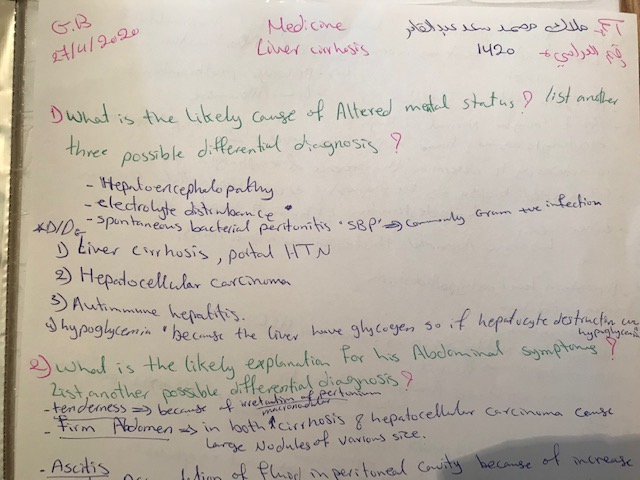 G.B
27/4/2020
Medicine
Liver cirrhosis
ملاك محمد سعد عبدالقادر
رقم الدراسي * 1420
1) What is the likely cause of Altered mental status? list another
three possible differential diagnosis?
- Hepatoencephalopathy
- electrolyte distrubance
- spontaneous bacterial peritonitis "SBP" => commonly Gram +ve infection
*D/D:
1) Liver cirrhosis, portal HTN
2) Hepatocellular carcinoma
3) Autimmune hepatitis.
4) hypoglycemia "because the liver have glycogen so if hepatocyte destruction
hypoglycemia
2) What is the likely explanation for his Abdominal symptoms?
List another possible differential diagnosis?
- tenderness => because of irretation of peritonium
macronodular
- Firm Abdomen => in both ↑ cirrhosis & hepatocellular carcinoma cause
Large Nodules of various size.
- Ascitis
of fluid in peritoneal cavity because of increase